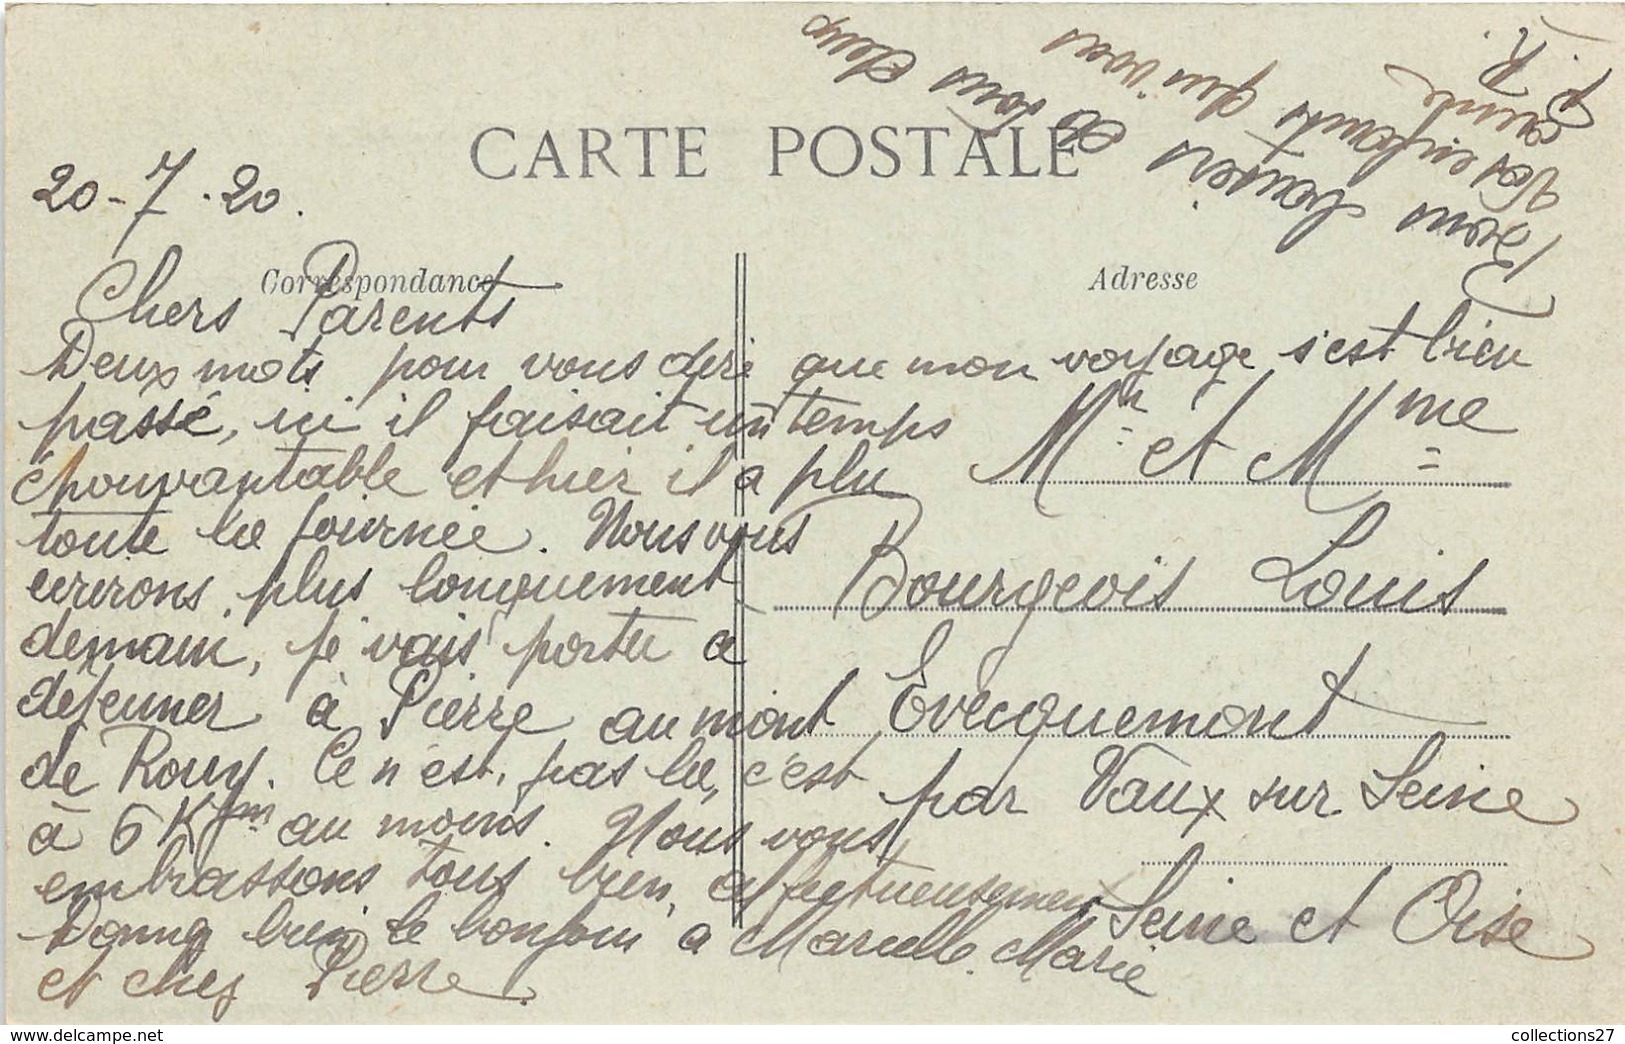 CARTE POSTALE
20-7.20.
Correspondance
Adresse
Chers Parents
Deux mots pour vous dire que mon voyage s'est bien
passé, ici il faisait un temps
épouvantable et hier il a plu
toute la journée. Nous vous
ecrirons plus longuement
demain, je vais porter a
dejeuner à Pierre au mont
de Rouy. Ce n'est pas la, c'est
à 6 Km au moins. Nous vous
embrassons tous bien affectueusement
Donnez bien le bonjour a Marcelle. Marie
et chez Pierre.
Mr et Mme
Bourgeois Louis
Evecquemont
par Vaux sur Seine
Seine et Oise
Bons baisers de tous deux
Vos enfants qui vous
aime
P. R.
collections27